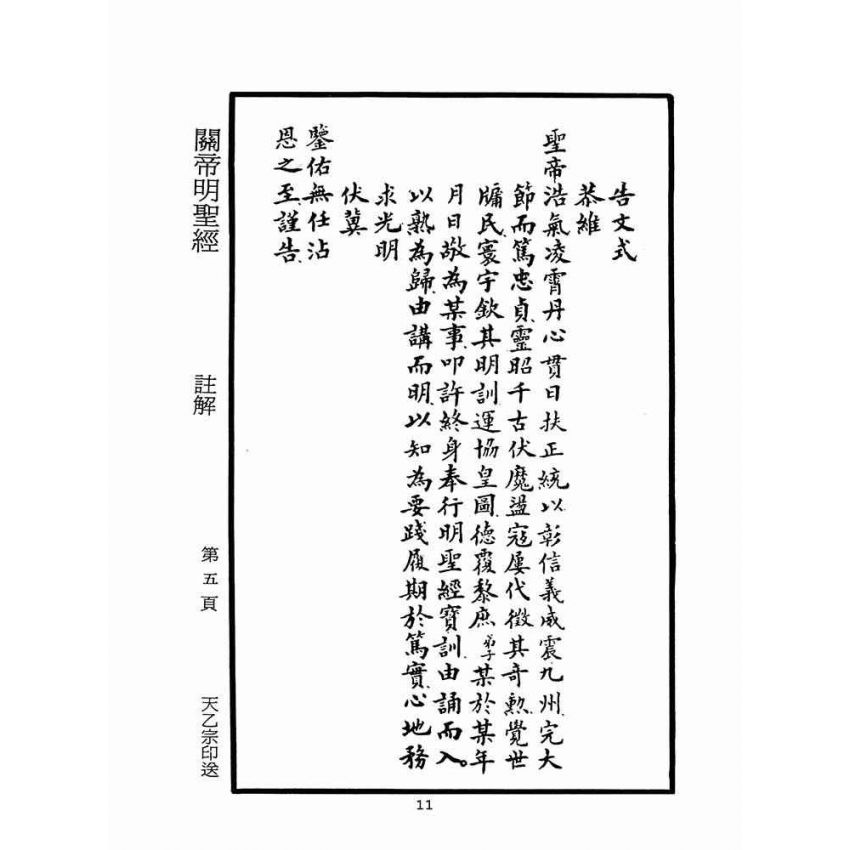 告文式
恭維
聖帝浩氣凌霄丹心貫日扶正統以彰信義威震九州完大
節而篤忠貞靈昭千古伏魔盪寇屢代徵其奇勲覺世
牖民寰宇欽其明訓運協皇圖德覆黎庶弟子某於某年
月日敬為某事叩許終身奉行明聖經寶訓由誦而入。
以熟為歸由講而明以知為要踐履期於篤實心地務
求光明
伏冀
鑒佑無任沾
恩之至謹告
關帝明聖經 註解 第五頁 天乙宗印送
11